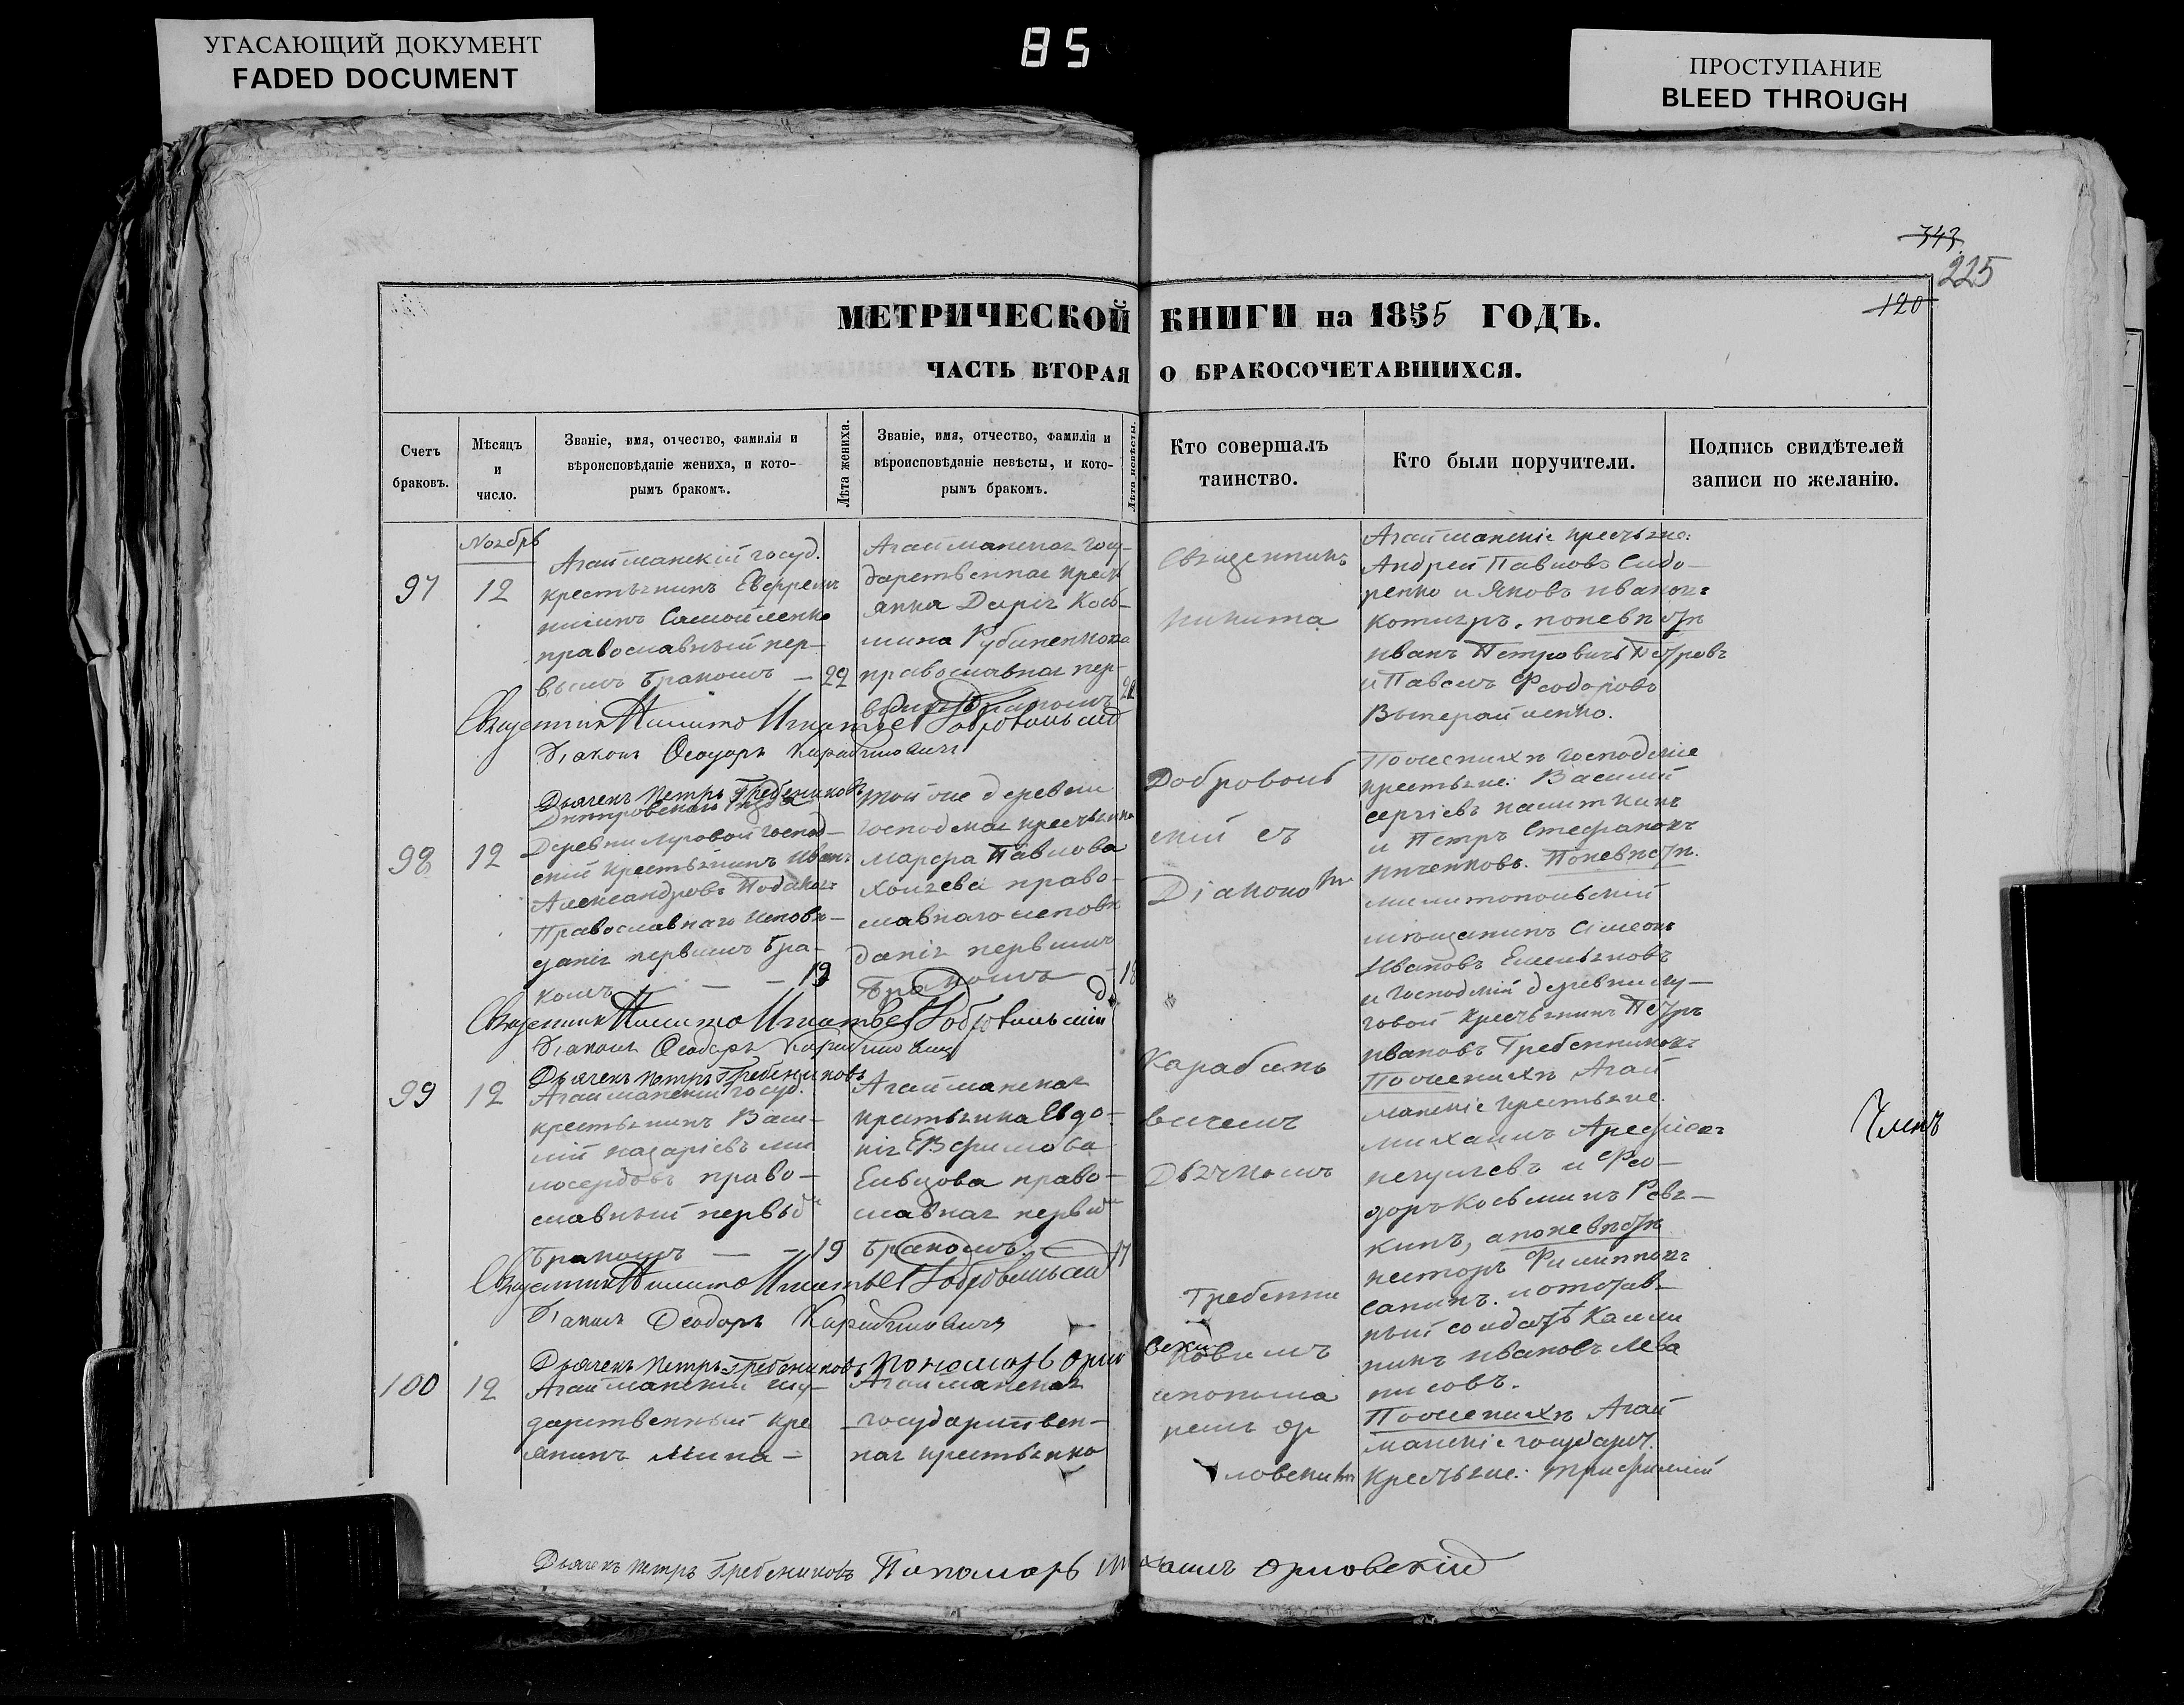 УГАСАЮЩИЙ ДОКУМЕНТ
FADED DOCUMENT
85
ПРОСТУПАНИЕ
BLEED THROUGH
343
225
120
МЕТРИЧЕСКОЙ КНИГИ на 1855 ГОДЪ.
ЧАСТЬ ВТОРАЯ О БРАКОСОЧЕТАВШИХСЯ.
Счетъ
браковъ.
Мѣсяцъ
и
число.
Званіе, имя, отчество, фамилія и
вѣроисповѣданіе жениха, и кото-
рымъ бракомъ.
Лѣта жениха.
Званіе, имя, отчество, фамилія и
вѣроисповѣданіе невѣсты, и кото-
рымъ бракомъ.
Лѣта невѣсты.
Кто совершалъ
таинство.
Кто были поручители.
Подпись свидѣтелей
записи по желанію.
Ноябрь
97
12
Агайманскій госуд.
крестьянинъ
Самойленко
православный пер-
вымъ бракомъ — 22
Агайманская госу-
дарственная крест
янка Дарія Кось-
мина
православная пер-
вымъ бракомъ
Священникъ
Никита
Агайманскіе крестьяне:
Андрей Павловъ Сидо-
ренко и Яковъ Ивановъ
по невѣстѣ
Иванъ Петровичъ Петровъ
и Павелъ Феодоровъ
Священникъ Никита Игнатьевъ Добровольскій
Діаконъ Феодоръ Карабиновичъ
Дьячекъ Петръ Гребениковъ
98
12
Днѣпровскаго уѣзда
Деревни Луговой господ-
скій крестьянинъ Иванъ
Александровъ
Православнаго исповѣ-
данія первымъ бра-
комъ — — — 19
той же деревни
господская крестьянка
Марфа Павлова
право-
славнаго исповѣ
данія первымъ
бракомъ — 18
Доброволь
скій съ
Діакономъ
По женихѣ господскіе
крестьяне: Василій
Сергіевъ
и Петръ Стефановъ
По невѣстѣ.
мѣщанинъ Симеонъ
Ивановъ Емельяновъ
и господскій деревни Лу-
говой крестьянинъ Петръ
Ивановъ Гребенниковъ
Священникъ Никита Игнатьевъ Добровольскій
Діаконъ Феодоръ Карабиновичъ
Дьячекъ Петръ Гребениковъ
99
12
Агайманскій госуд.
крестьянинъ Васи-
лій Назаріевъ Ми
лосердовъ право-
славный первый
бракомъ — — 19
Агайманская
крестьянка Евдо-
кія Евфимова
Ельцова право-
славная первый
бракомъ. — 17
Карабино
вичемъ
Дьячкомъ
По женихѣ Агай
манскіе крестьяне.
Михаилъ Арефіевъ
и Фео-
доръ Косьминъ Ревя-
кинъ, а по невѣстѣ
Несторъ Филиповъ
и отстав-
ный солдатъ Калли
никъ Ивановъ Лева
Членъ
Священникъ Никита Игнатьевъ Добровольскій
Діаконъ Феодоръ Карабиновичъ
Дьячекъ Петръ Гребениковъ Пономарь Орловскій
100
12
Агайманскій госу-
дарственный кре
янинъ Мина-
Агайманская
государствен-
ная крестьянка
Гребенни
ковымъ
и понома
ремъ Ор
ловскимъ
По женихѣ Агай
манскіе государст.
крестьяне: Трифиллій
Дьячекъ Петръ Гребениковъ Пономарь Михаилъ Орловскій